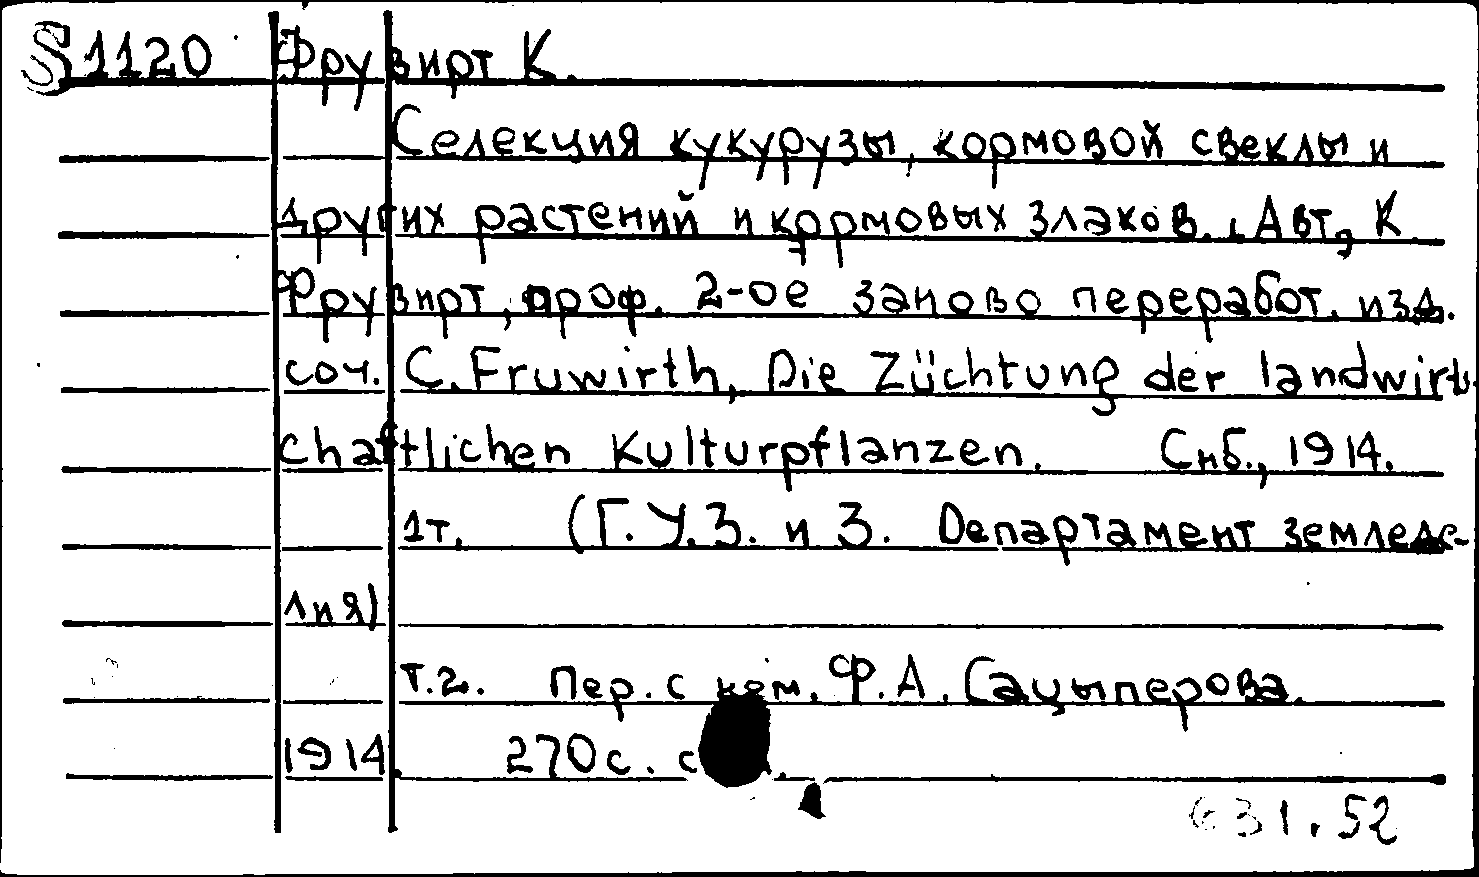 S1120 Фрувирт К.
Селекция кукурузы, кормовой свеклы и
других растений и кормовых злаков. Авт. К
Фрувирт, проф. 2-ое заново переработ. изд.
соч. C. Fruwirth, Die Züchtung der landwirt-
chaftlichen Kulturpflanzen. Спб., 1914.
1т. (Г.У.З. и З. Департамент земледе-
лия)
т.2. Пер. с нем. Ф.А. Сацыперова.
1914. 270с. с
631.52